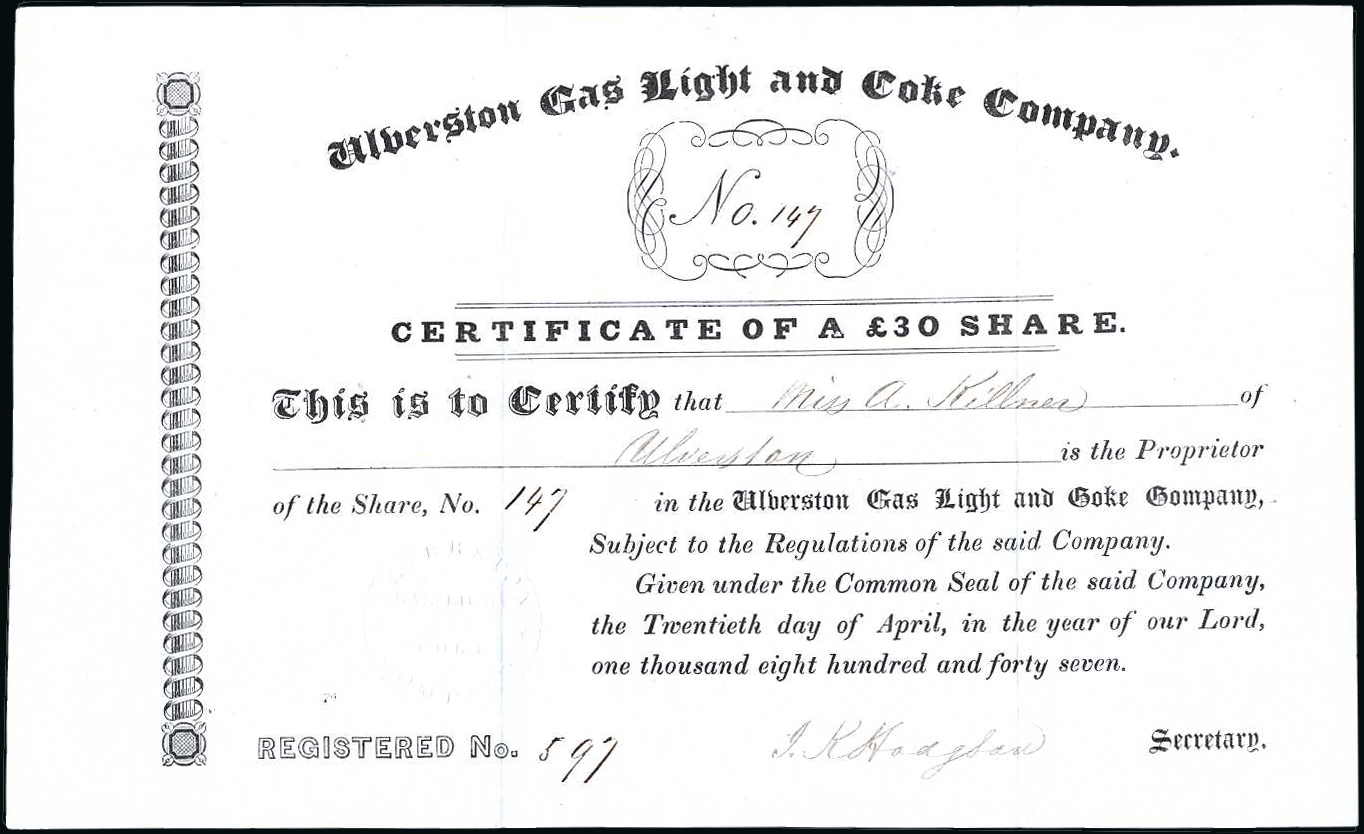 Ulverston Gas Light and Coke Company.
No. 147
CERTIFICATE OF A £30 SHARE.
This is to Certify that Miss A. Killner of
Ulverston is the Proprietor
of the Share, No. 147 in the Ulverston Gas Light and Coke Company,
Subject to the Regulations of the said Company.
Given under the Common Seal of the said Company,
the Twentieth day of April, in the year of our Lord,
one thousand eight hundred and forty seven.
REGISTERED No. 597 J. K Hodgson Secretary.